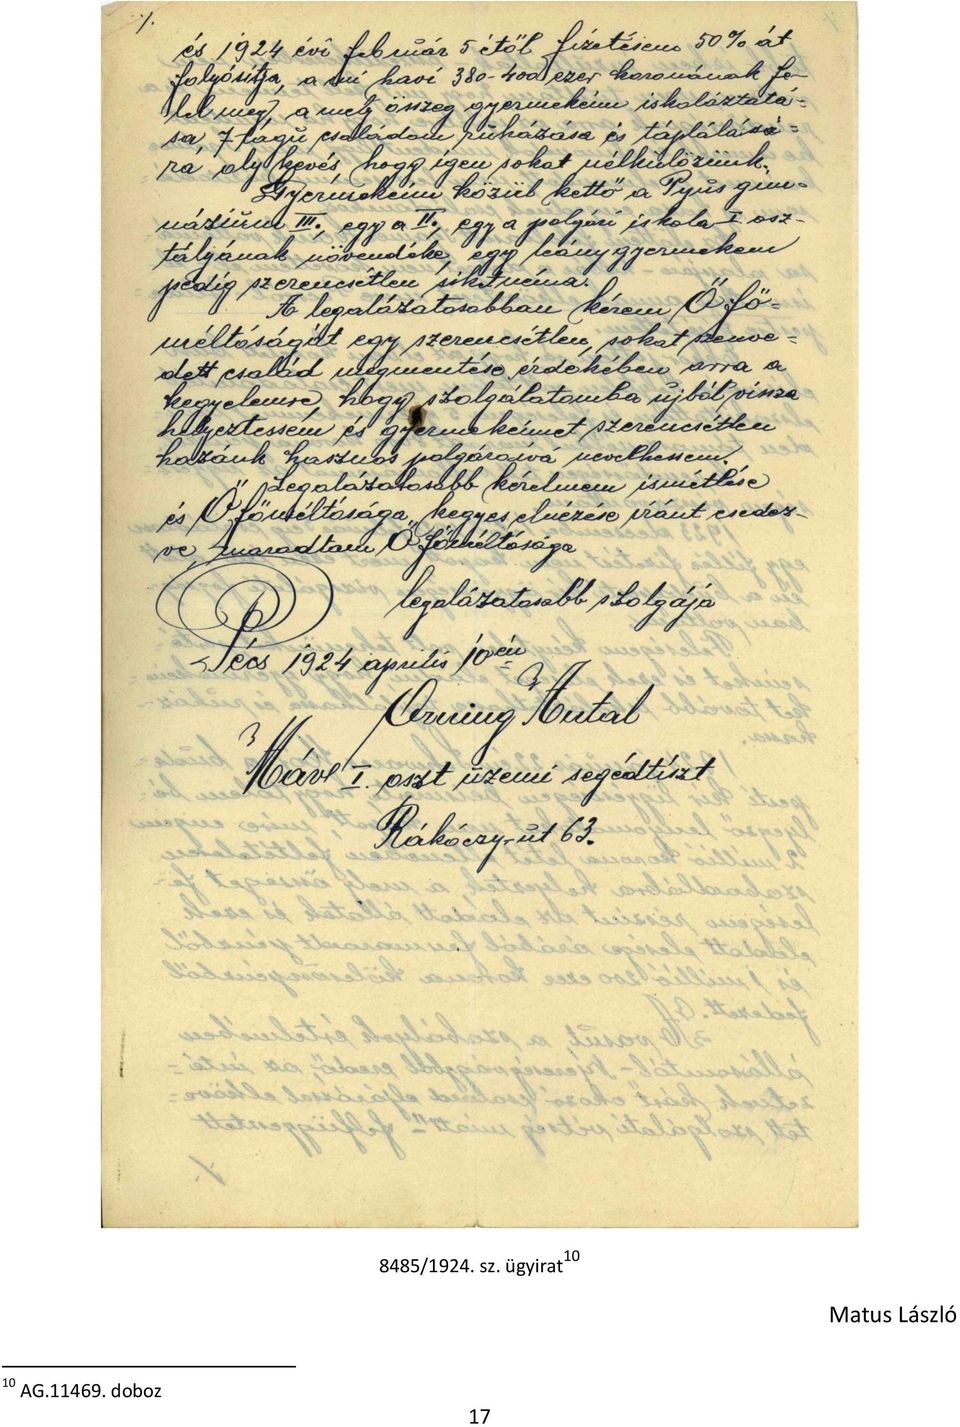 ./.
és 1924 évi február 5 étől fizetésem 50% át
folyósitja, a mi havi 380-400 ezer koronának fe-
lel meg, a mely összeg gyermekeim iskoláztatá-
sa, 7 tágú családom ruházása és táplálásá-
ra oly kevés, hogy igen sokat nélkülözünk.
Gyermekeim közül kettő a Pyus gim-
názium III., egy a II., egy a polgári iskola I osz-
tályának növendéke, egy leánygyermekem
pedig szerencsétlen siketnéma.
A legalázatosabban kérem Ő fő-
méltóságát egy szerencsétlen, sokat szenve-
dett család megmentése érdekében arra a
kegyelemre, hogy szolgálatomba újból vissza
helyeztessem és gyermekeimet szerencsétlen
hazánk hasznos polgáraivá nevelhessem.
Legalázatosabb kérelmem ismétlése
és Ő főméltósága kegyes elnézése iránt esedez-
ve, maradtam Ő főméltósága
legalázatosabb szolgája
Pécs 1924 április 10 én
Orning Antal
Máv I. oszt üzemi segédtiszt
Rákóczy-út 63.
8485/1924. sz. ügyirat10
Matus László
10 AG.11469. doboz
17